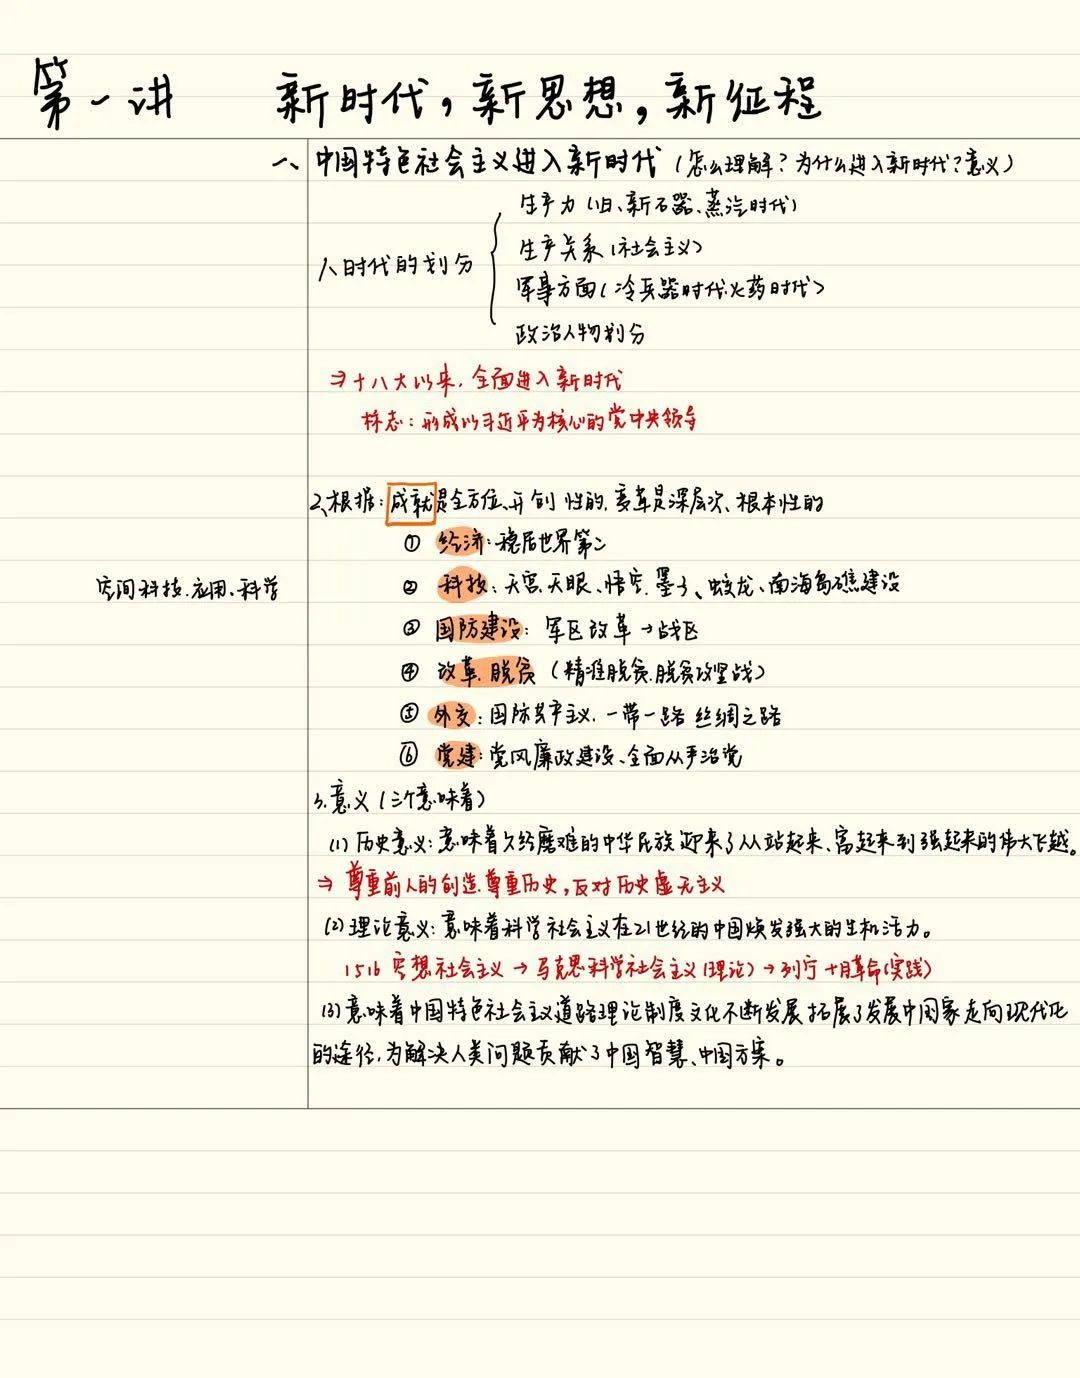 第一讲 新时代，新思想，新征程
一、中国特色社会主义进入新时代（怎么理解？为什么进入新时代？意义）
1、时代的划分
生产力（旧、新石器、蒸汽时代）
生产关系（社会主义）
军事方面（冷兵器时代、火药时代）
政治人物划分
⇒十八大以来，全面进入新时代
标志：形成以习近平为核心的党中央领导
2、根据：成就是全方位、开创性的，变革是深层次、根本性的
① 经济：稳居世界第二
空间科技、应用、科学
② 科技：天宫、天眼、悟空、墨子、蛟龙、南海岛礁建设
③ 国防建设：军区改革→战区
④ 改革、脱贫（精准脱贫、脱贫攻坚战）
⑤ 外交：国际共产主义、一带一路 丝绸之路
⑥ 党建：党风廉政建设、全面从严治党
3、意义（三个意味着）
(1) 历史意义：意味着久经磨难的中华民族迎来了从站起来、富起来到强起来的伟大飞越。
⇒ 尊重前人的创造、尊重历史，反对历史虚无主义
(2) 理论意义：意味着科学社会主义在21世纪的中国焕发强大的生机活力。
1516 空想社会主义→马克思科学社会主义（理论）→列宁十月革命（实践）
(3) 意味着中国特色社会主义道路理论制度文化不断发展 拓展了发展中国家走向现代化
的途径，为解决人类问题贡献了中国智慧、中国方案。